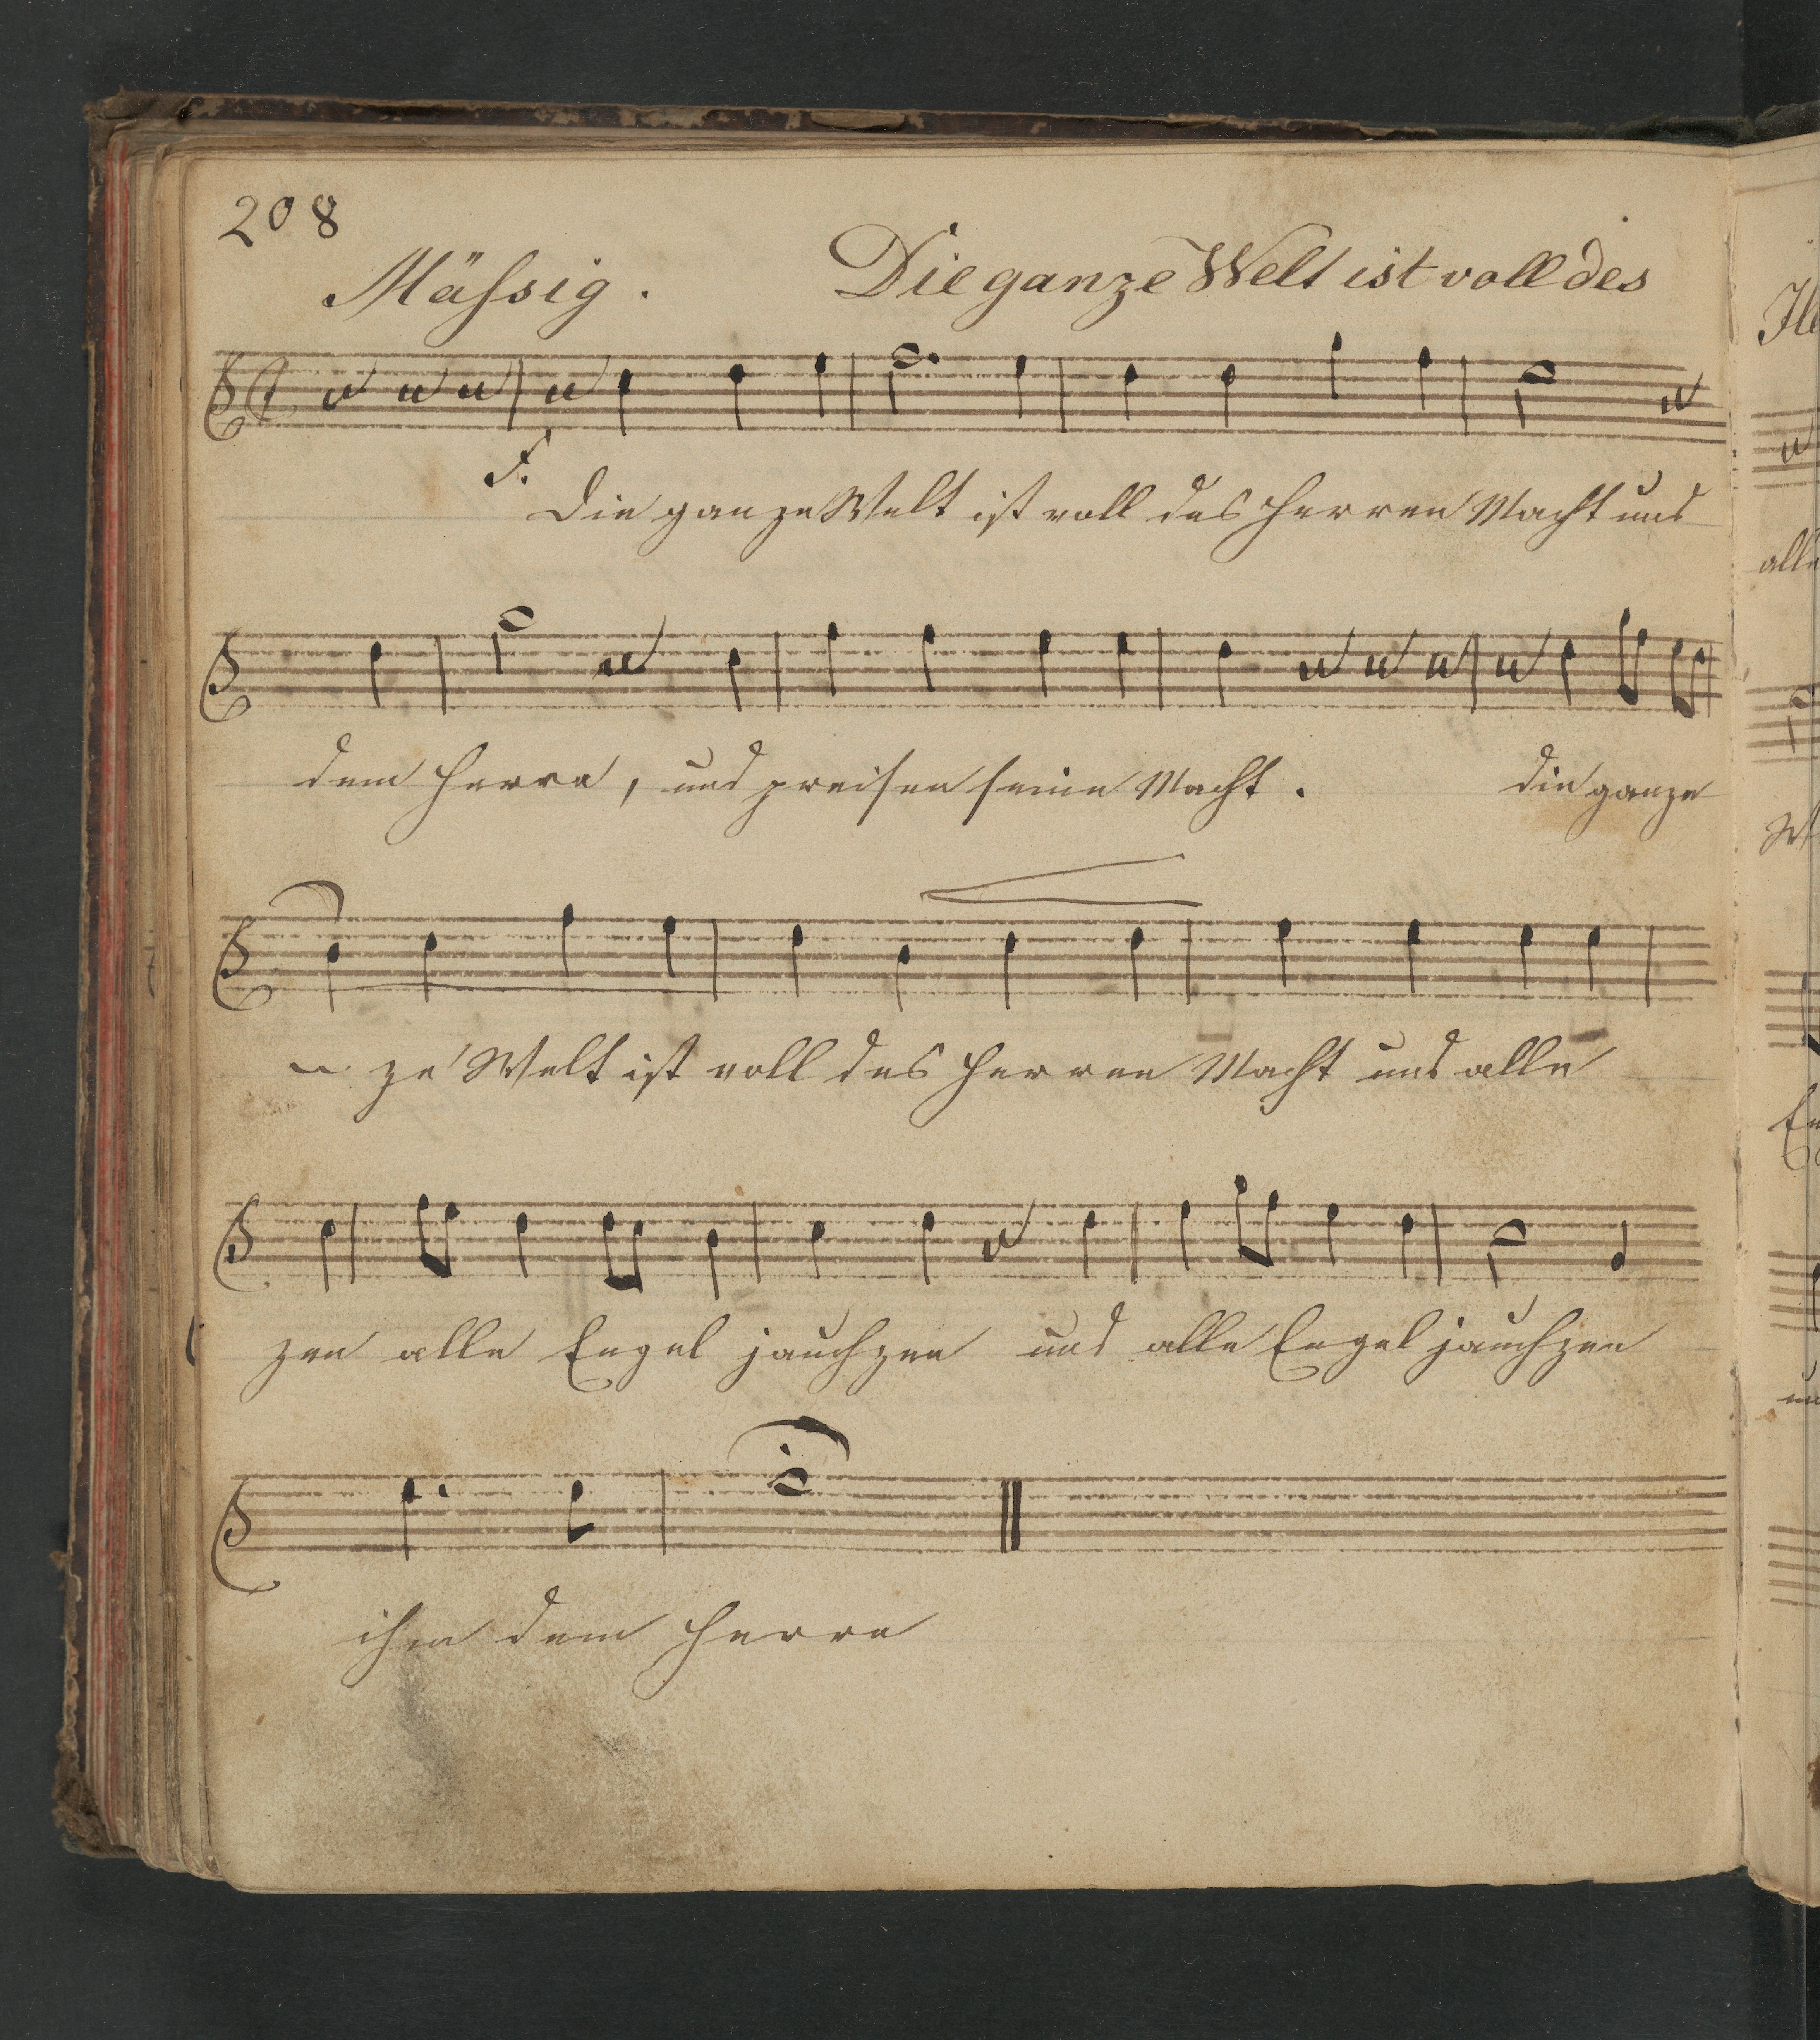 208
Mässig. Die ganze Welt ist voll des
F.
Die ganze Welt ist voll des Herren Macht und
dem Herrn, und preisen seine Macht. die ganze
ze Welt ist voll des Herren Macht und alle
zen alle Engel jauchzen und alle Engel jauchzen
ihm dem Herrn
alle